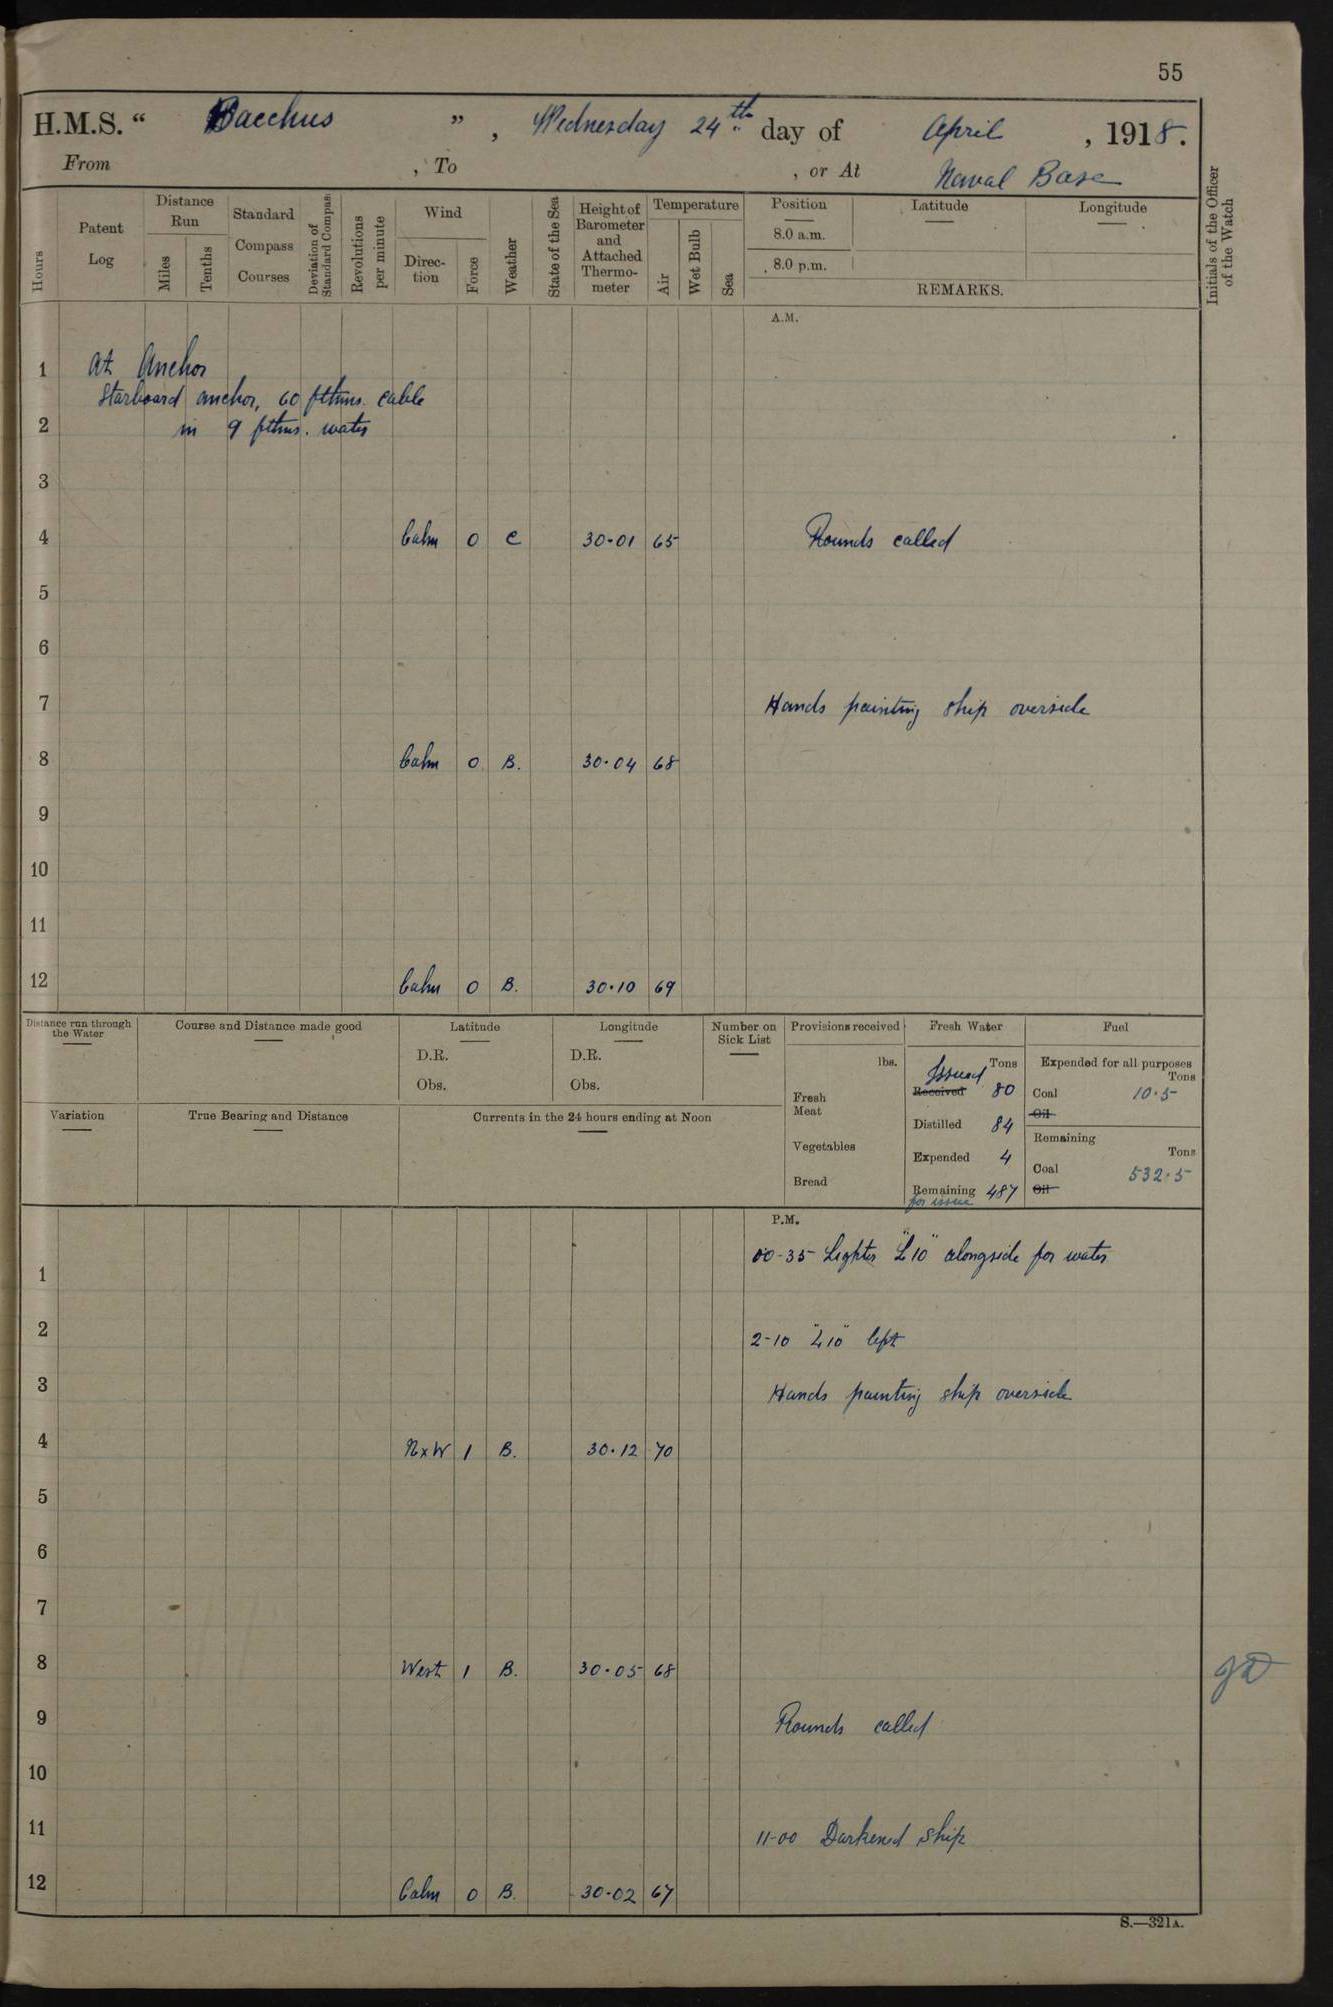 55
H.M.S. “ Bacchus ” , Wednesday 24th day of April , 1918.
From , To , or At Naval Base
Hours
Patent Log
Distance Run
Miles
Tenths
Standard Compass Courses
Deviation of Standard Compass
Revolutions per minute
Wind
Direc-tion
Force
Weather
State of the Sea
Height of Barometer and Attached Thermo-meter
Temperature
Air
Wet Bulb
Sea
Position
Latitude
Longitude
8.0 a.m.
8.0 p.m.
REMARKS.
Initials of the Officer of the Watch
A.M.
1 At Anchor
Starboard anchor, 60 fthms. cable
2 in 9 fthms. water
3
4 Calm 0 C 30·01 65 Rounds called
5
6
7 Hands painting ship overside
8 Calm 0 B. 30·04 68
9
10
11
12 Calm 0 B. 30·10 69
Distance run through the Water
Course and Distance made good
Latitude
D.R.
Obs.
Longitude
D.R.
Obs.
Number on Sick List
Variation
True Bearing and Distance
Currents in the 24 hours ending at Noon
Provisions received
lbs.
Fresh Meat
Vegetables
Bread
Fresh Water
Tons
Issued
Received 80
Distilled 84
Expended 4
Remaining 487
for issue
Fuel
Expended for all purposes
Tons
Coal 10·5
Oil
Remaining
Tons
Coal 532·5
Oil
P.M.
00-35 Lighter "L10" alongside for water
1
2 2-10 "L10" left
3 Hands painting ship overside
4 NxW 1 B. 30·12 70
5
6
7
8 West 1 B. 30·05 68
9 Rounds called
10
11 11-00 Darkened ship
12 Calm 0 B. 30·02 67
S.—321A.